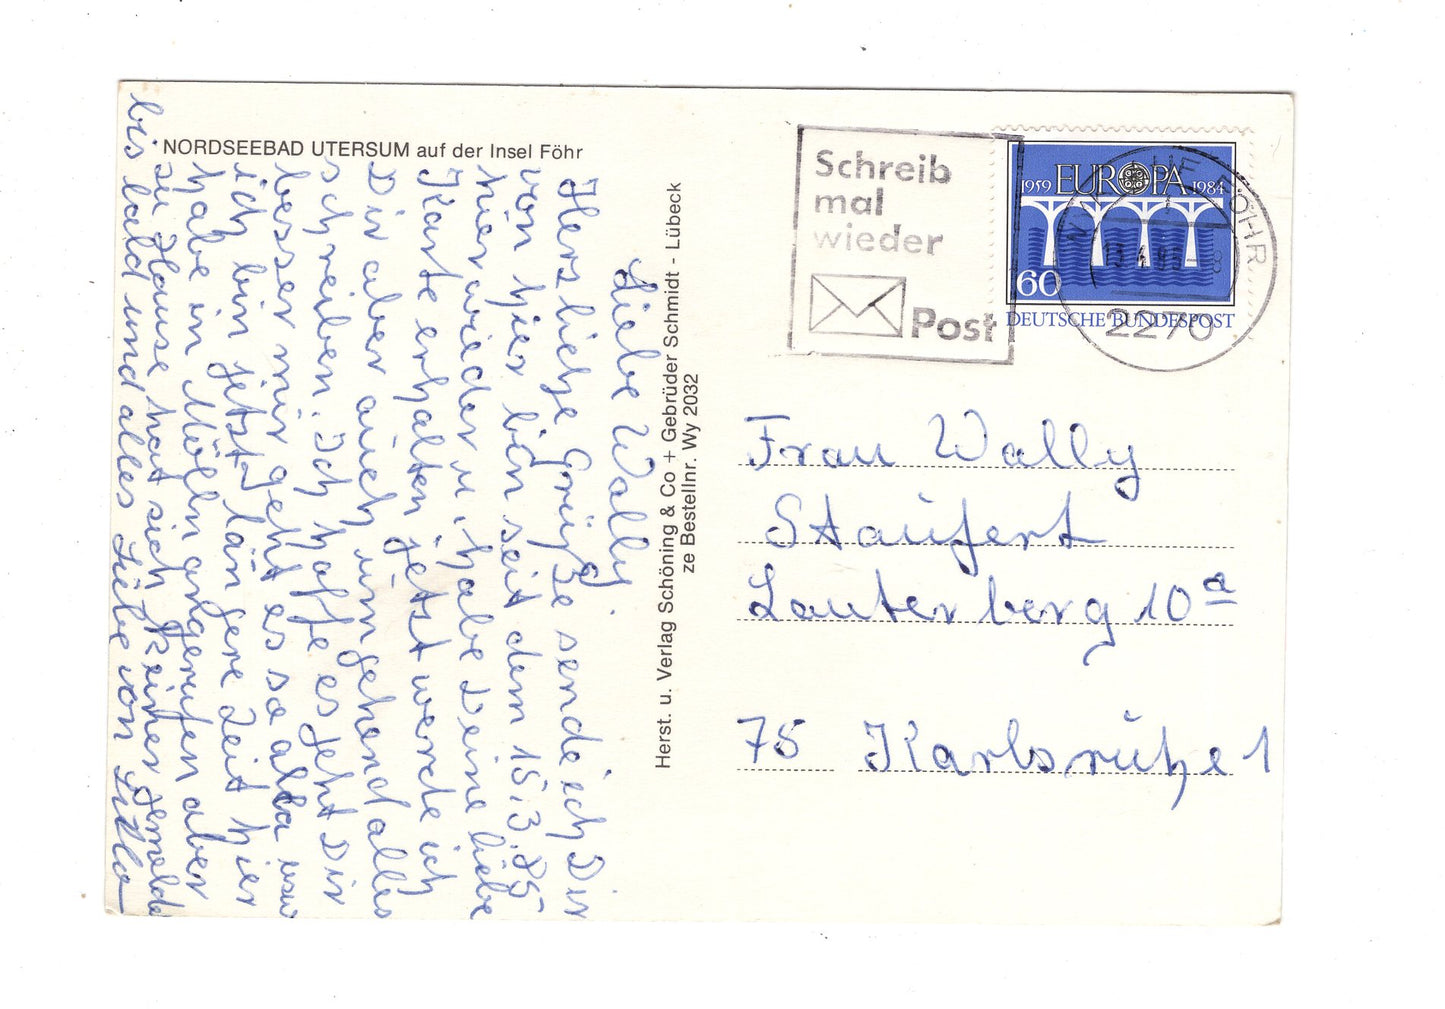 NORDSEEBAD UTERSUM auf der Insel Föhr
Liebe Wally.
Herzliche Grüße sende ich Dir
von hier bin seit dem 15.3.85
hier wieder u. habe Deine liebe
Karte erhalten, jetzt werde ich
Dir aber auch umgehend alles
schreiben. Ich hoffe es geht Dir
besser mir geht es so usw
ich bin jetzt längere Zeit hier
habe in Mölln angerufen aber
zu Hause hat sich keiner gemeldet
bis bald und alles Liebe von
Herst. u. Verlag Schöning & Co + Gebrüder Schmidt - Lübeck
ze Bestellnr. Wy 2032
Schreib
mal
wieder
Post
1959 EUROPA 1984
60
DEUTSCHE BUNDESPOST
2270
Frau Wally
Staufert
Lauterberg 10a
75 Karlsruhe 1